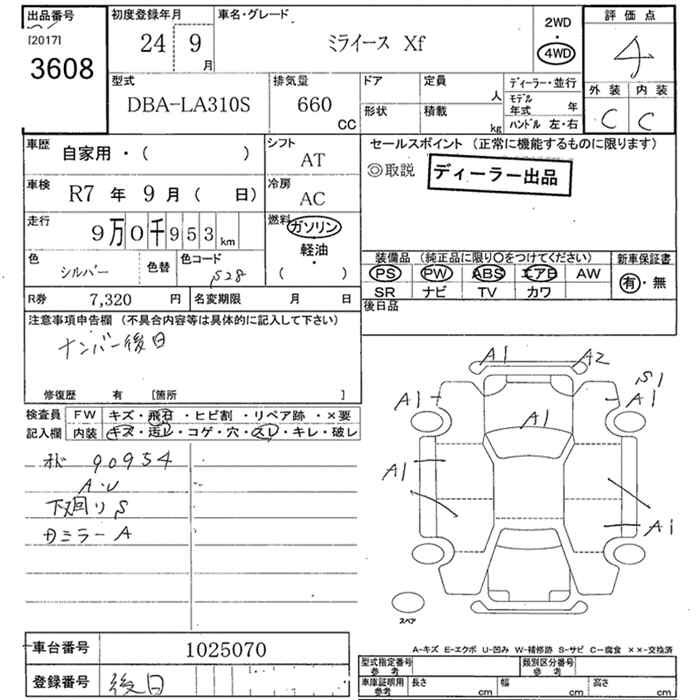 出品番号 初度登録年月 車名・グレード 2WD 評価点
[2017] 24 9 月 ミライース Xf ・ 4
3608 4WD
型式 排気量 ドア 定員 人 ディーラー・並行 外装 内装
DBA-LA310S 660 CC 形状 積載 kg モデル年式 年 C C
ハンドル 左・右
車歴 自家用・( ) シフト AT セールスポイント (正常に機能するものに限ります)
◎取説 ディーラー出品
車検 R7 年 9 月 ( 日) 冷房 AC
走行 9万0千953km 燃料 ガソリン・
軽油・
( )
色 シルバー 色替 色コード S28
装備品 (純正品に限り○をつけてください) 新車保証書
PS PW ABS エアB AW 有・無
SR ナビ TV カワ
R券 7,320 円 名変期限 月 日 後日品
注意事項申告欄 (不具合内容等は具体的に記入して下さい)
ナンバー後日
修復歴 有 [箇所 ]
検査員 FW キズ・飛石・ヒビ割・リペア跡・×要
記入欄 内装 キズ・汚レ・コゲ・穴・スレ・キレ・破レ
A1 A2
S1
A1 A1
A1
A1
A1
メド 90954
A・U
下廻りS
ミラーA
スペア
車台番号 1025070
登録番号 後日
A-キズ E-エクボ U-凹み W-補修跡 S-サビ C-腐食 ××-交換済
型式指定番号 参考 類別区分番号 参考
車庫証明用 参考 長さ cm 幅 cm 高さ cm